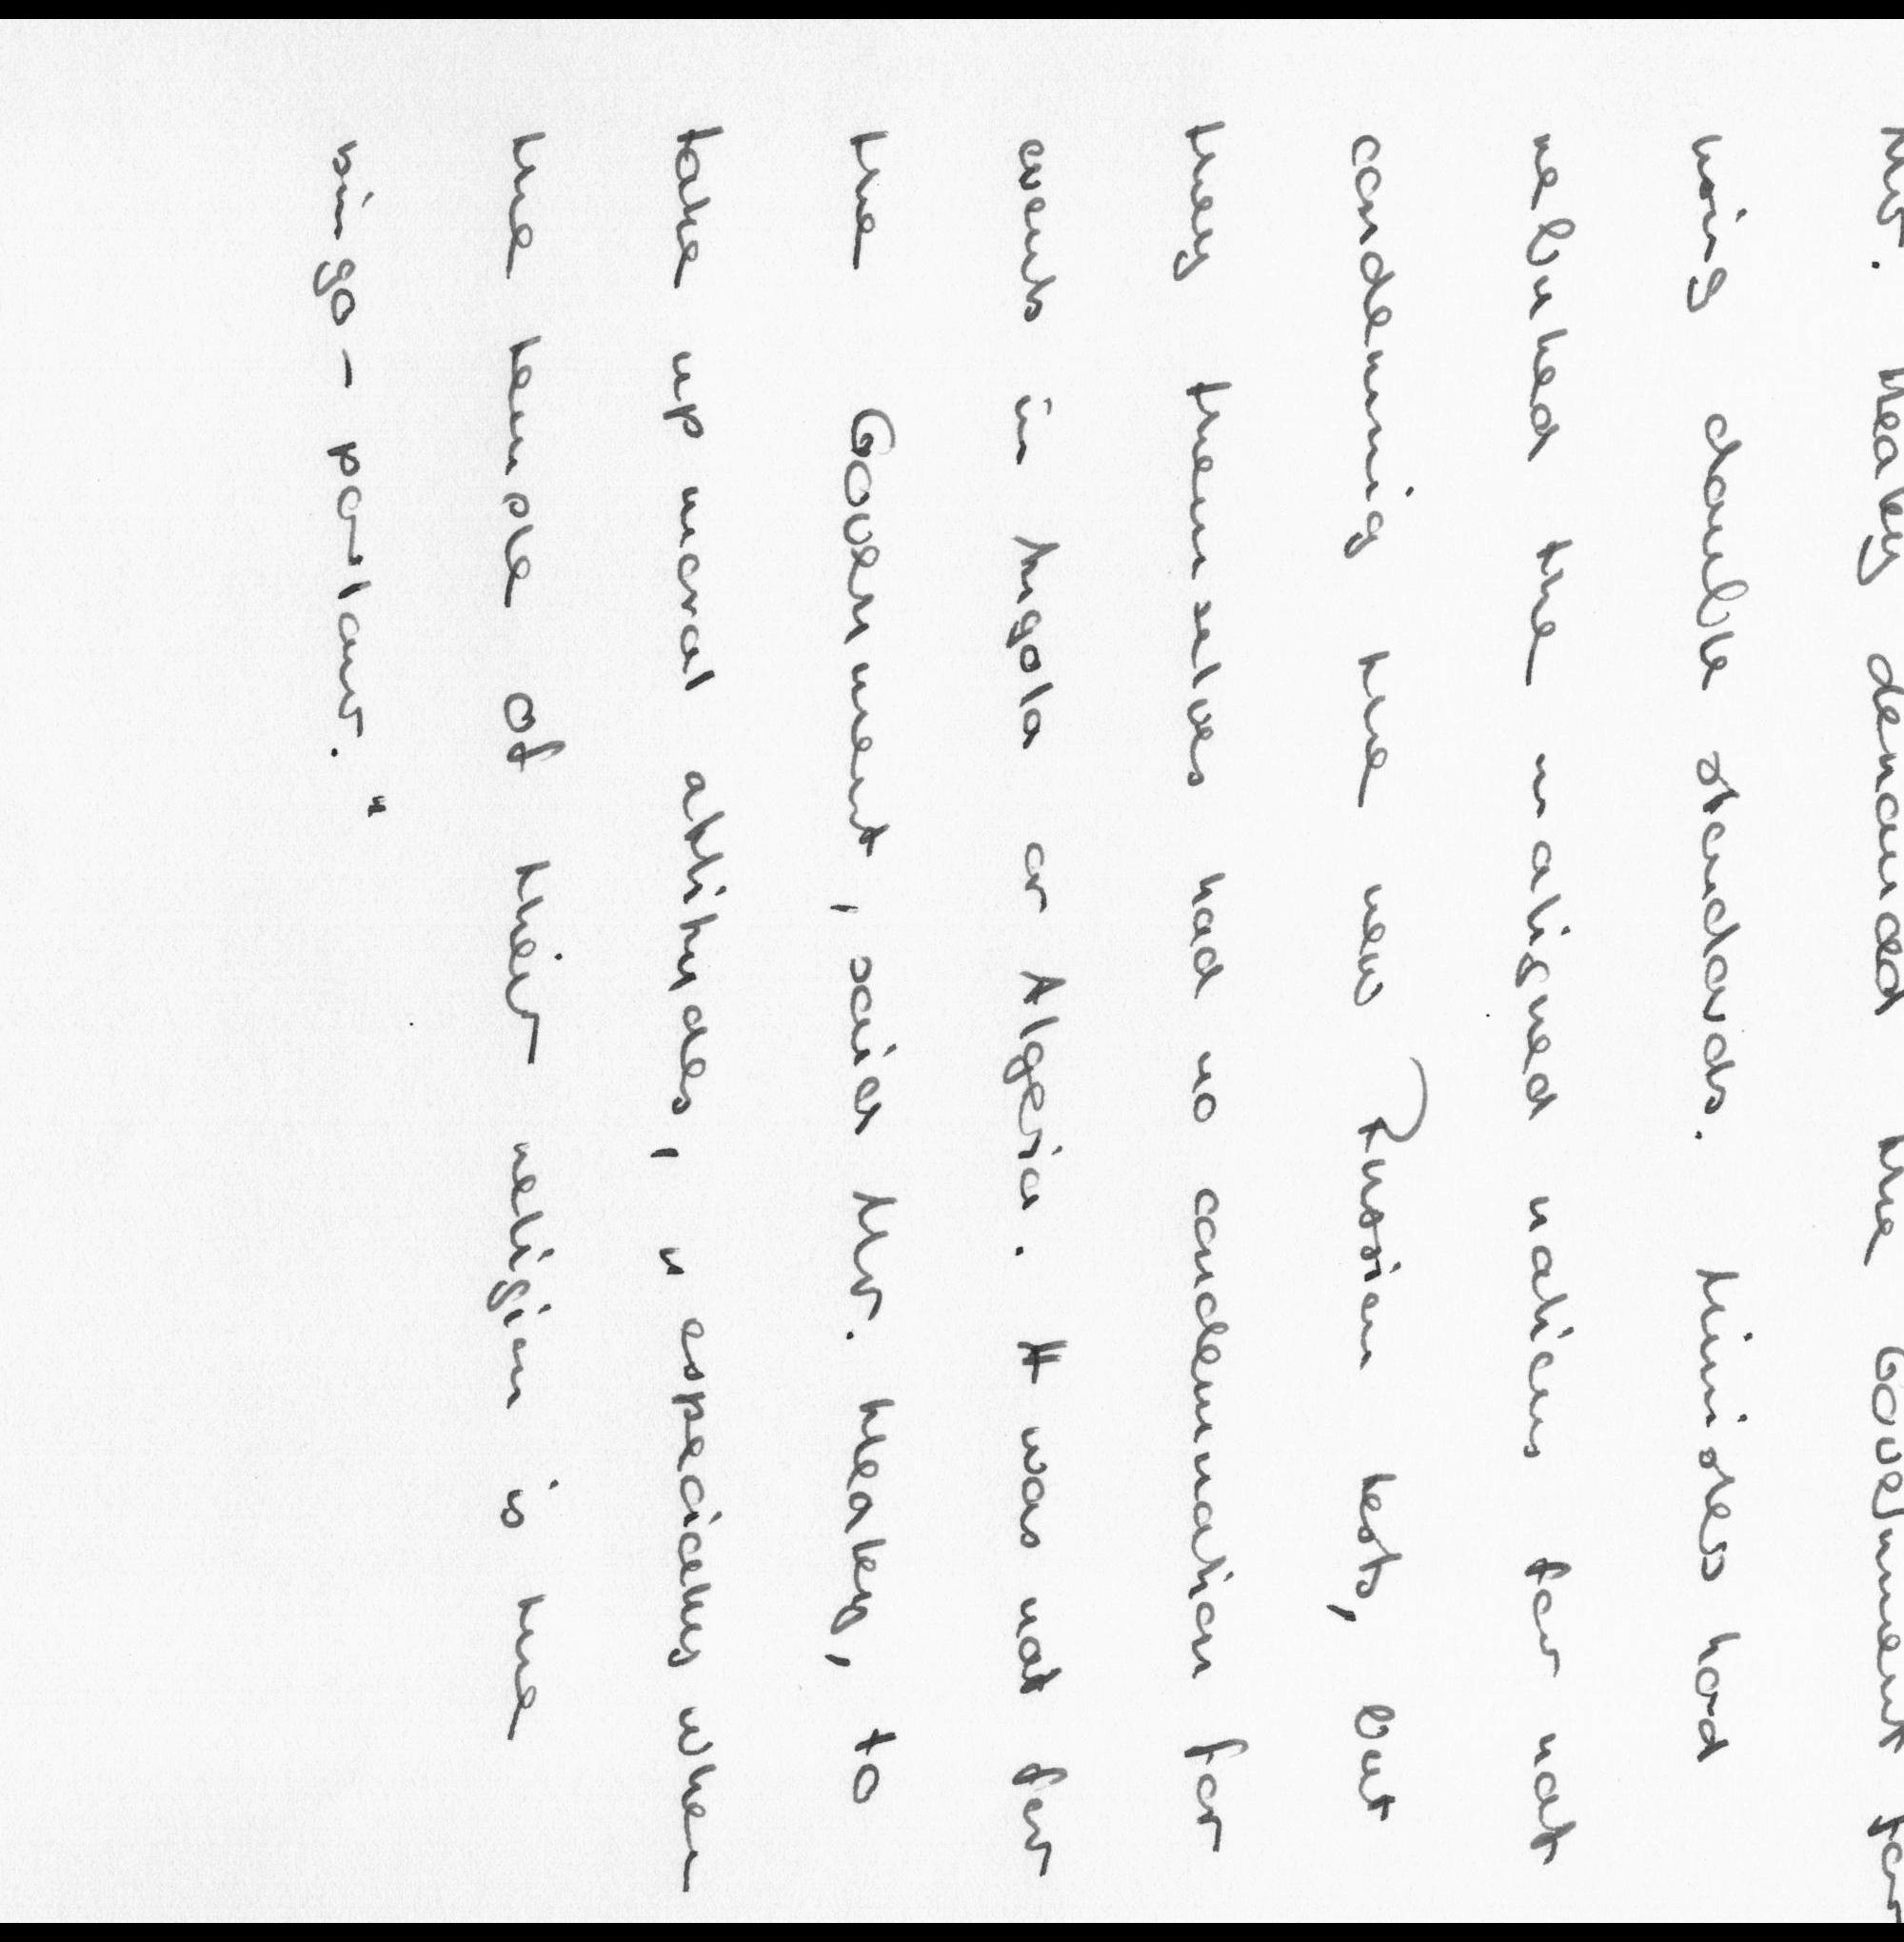 Mr. Healey denounced the Government for
using double standards. Ministers had
rebuked the unaligned nations for not
condemning the new Russian tests, but
they themselves had no condemnation for
events in Angola or Algeria. It was not for
the Government, said Mr. Healey, to
take up moral attitudes, " especially when
the temple of their religion is the
bingo-parlour. "